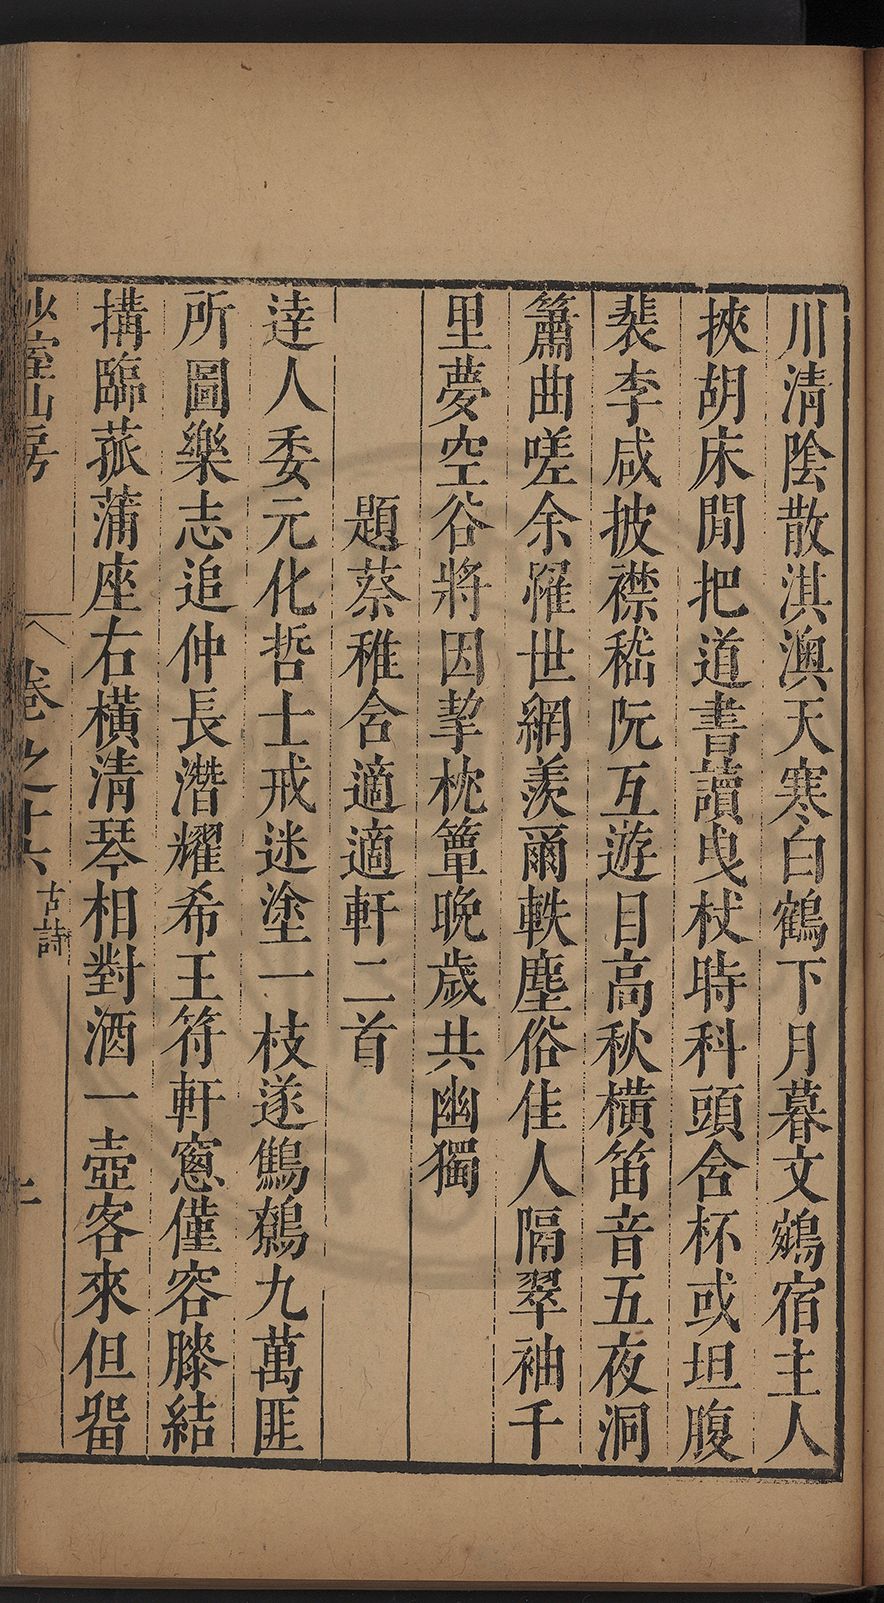 川清陰散淇澳天寒白鶴下月暮文鵷宿主人
挾胡床閒把道書讀曳杖時科頭含杯或坦腹
裴李咸披襟嵇阮互遊目高秋橫笛音五夜洞
簫曲嗟余罹世網羨爾軼塵俗佳人隔翠袖千
里夢空谷將因挈枕簟晚歲共幽獨
題蔡稚含適適軒二首
達人委元化哲士戒迷塗一枝遂鷦鷯九萬匪
所圖樂志追仲長潛耀希王符軒窻僅容膝結
搆臨菰蒲座右橫清琴相對酒一壺客來但留
少室山房 卷之十六 古詩